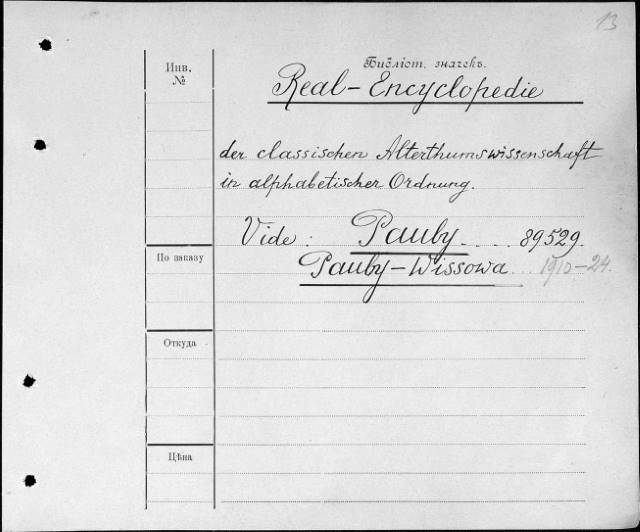 13
Инв.
№
Библіот. значекъ.
Real-Encyclopedie
der classischen Alterthumswissenschaft
in alphabetischer Ordnung.
Vide: Pauby .... 89529.
Pauby-Wissowa... 1910-24.
По заказу
Откуда
Цѣна